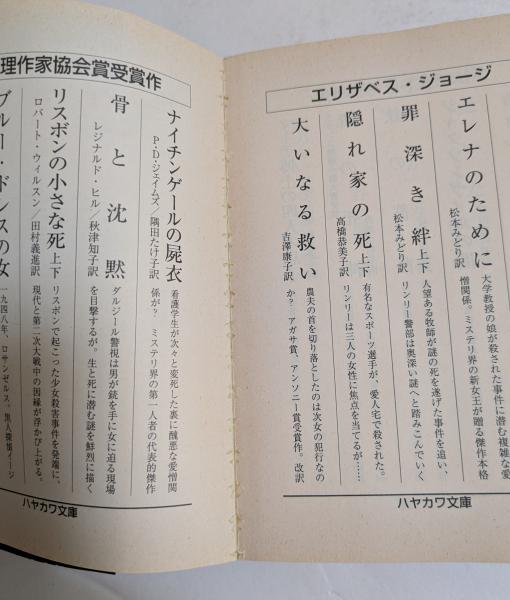 エリザベス・ジョージ
エレナのために
松本みどり訳
大学教授の娘が殺された事件に潜む複雑な愛
憎関係。ミステリ界の新女王が贈る傑作本格
罪深き絆 上下
松本みどり訳
人望ある牧師が謎の死を遂げた事件を追い、
リンリー警部は奥深い謎へと踏みこんでいく
隠れ家の死 上下
高橋恭美子訳
有名なスポーツ選手が、愛人宅で殺された。
リンリーは三人の女性に焦点を当てるが……
大いなる救い
吉澤康子訳
農夫の首を切り落としたのは次女の犯行なの
か? アガサ賞、アンソニー賞受賞作。改訳
ハヤカワ文庫
理作家協会賞受賞作
ナイチンゲールの屍衣
P・D・ジェイムズ/隅田たけ子訳
看護学生が次々と変死した裏に醜悪な愛憎関
係が? ミステリ界の第一人者の代表的傑作
骨と沈黙
レジナルド・ヒル/秋津知子訳
ダルジール警視は男が銃を手に女に迫る現場
を目撃するが。生と死に潜む謎を鮮烈に描く
リスボンの小さな死 上下
ロバート・ウィルスン/田村義進訳
リスボンで起こった少女殺害事件を発端に、
現代と第二次大戦中の因縁が浮かび上がる。
ブルー・ドレスの女
一九四八年、ロサンゼルス。黒人探偵イージ
ハヤカワ文庫